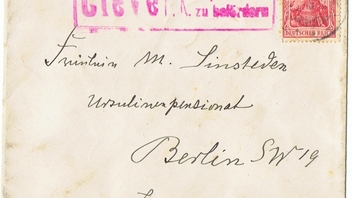 Cleve
F. K. zu befördern
DEUTSCHES REICH
Fräulein M. Linsteden
Ursulinenpensionat
Berlin SW 19